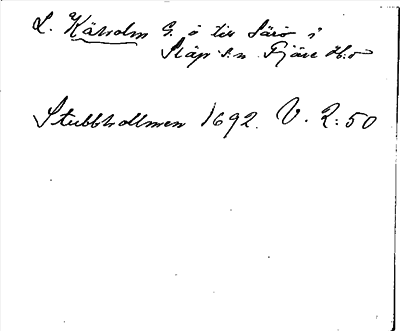 L. Käholm G. ö till Särö i
Släp s:n Fjäre Hd
Stubbholmen 1692. V. 2:50